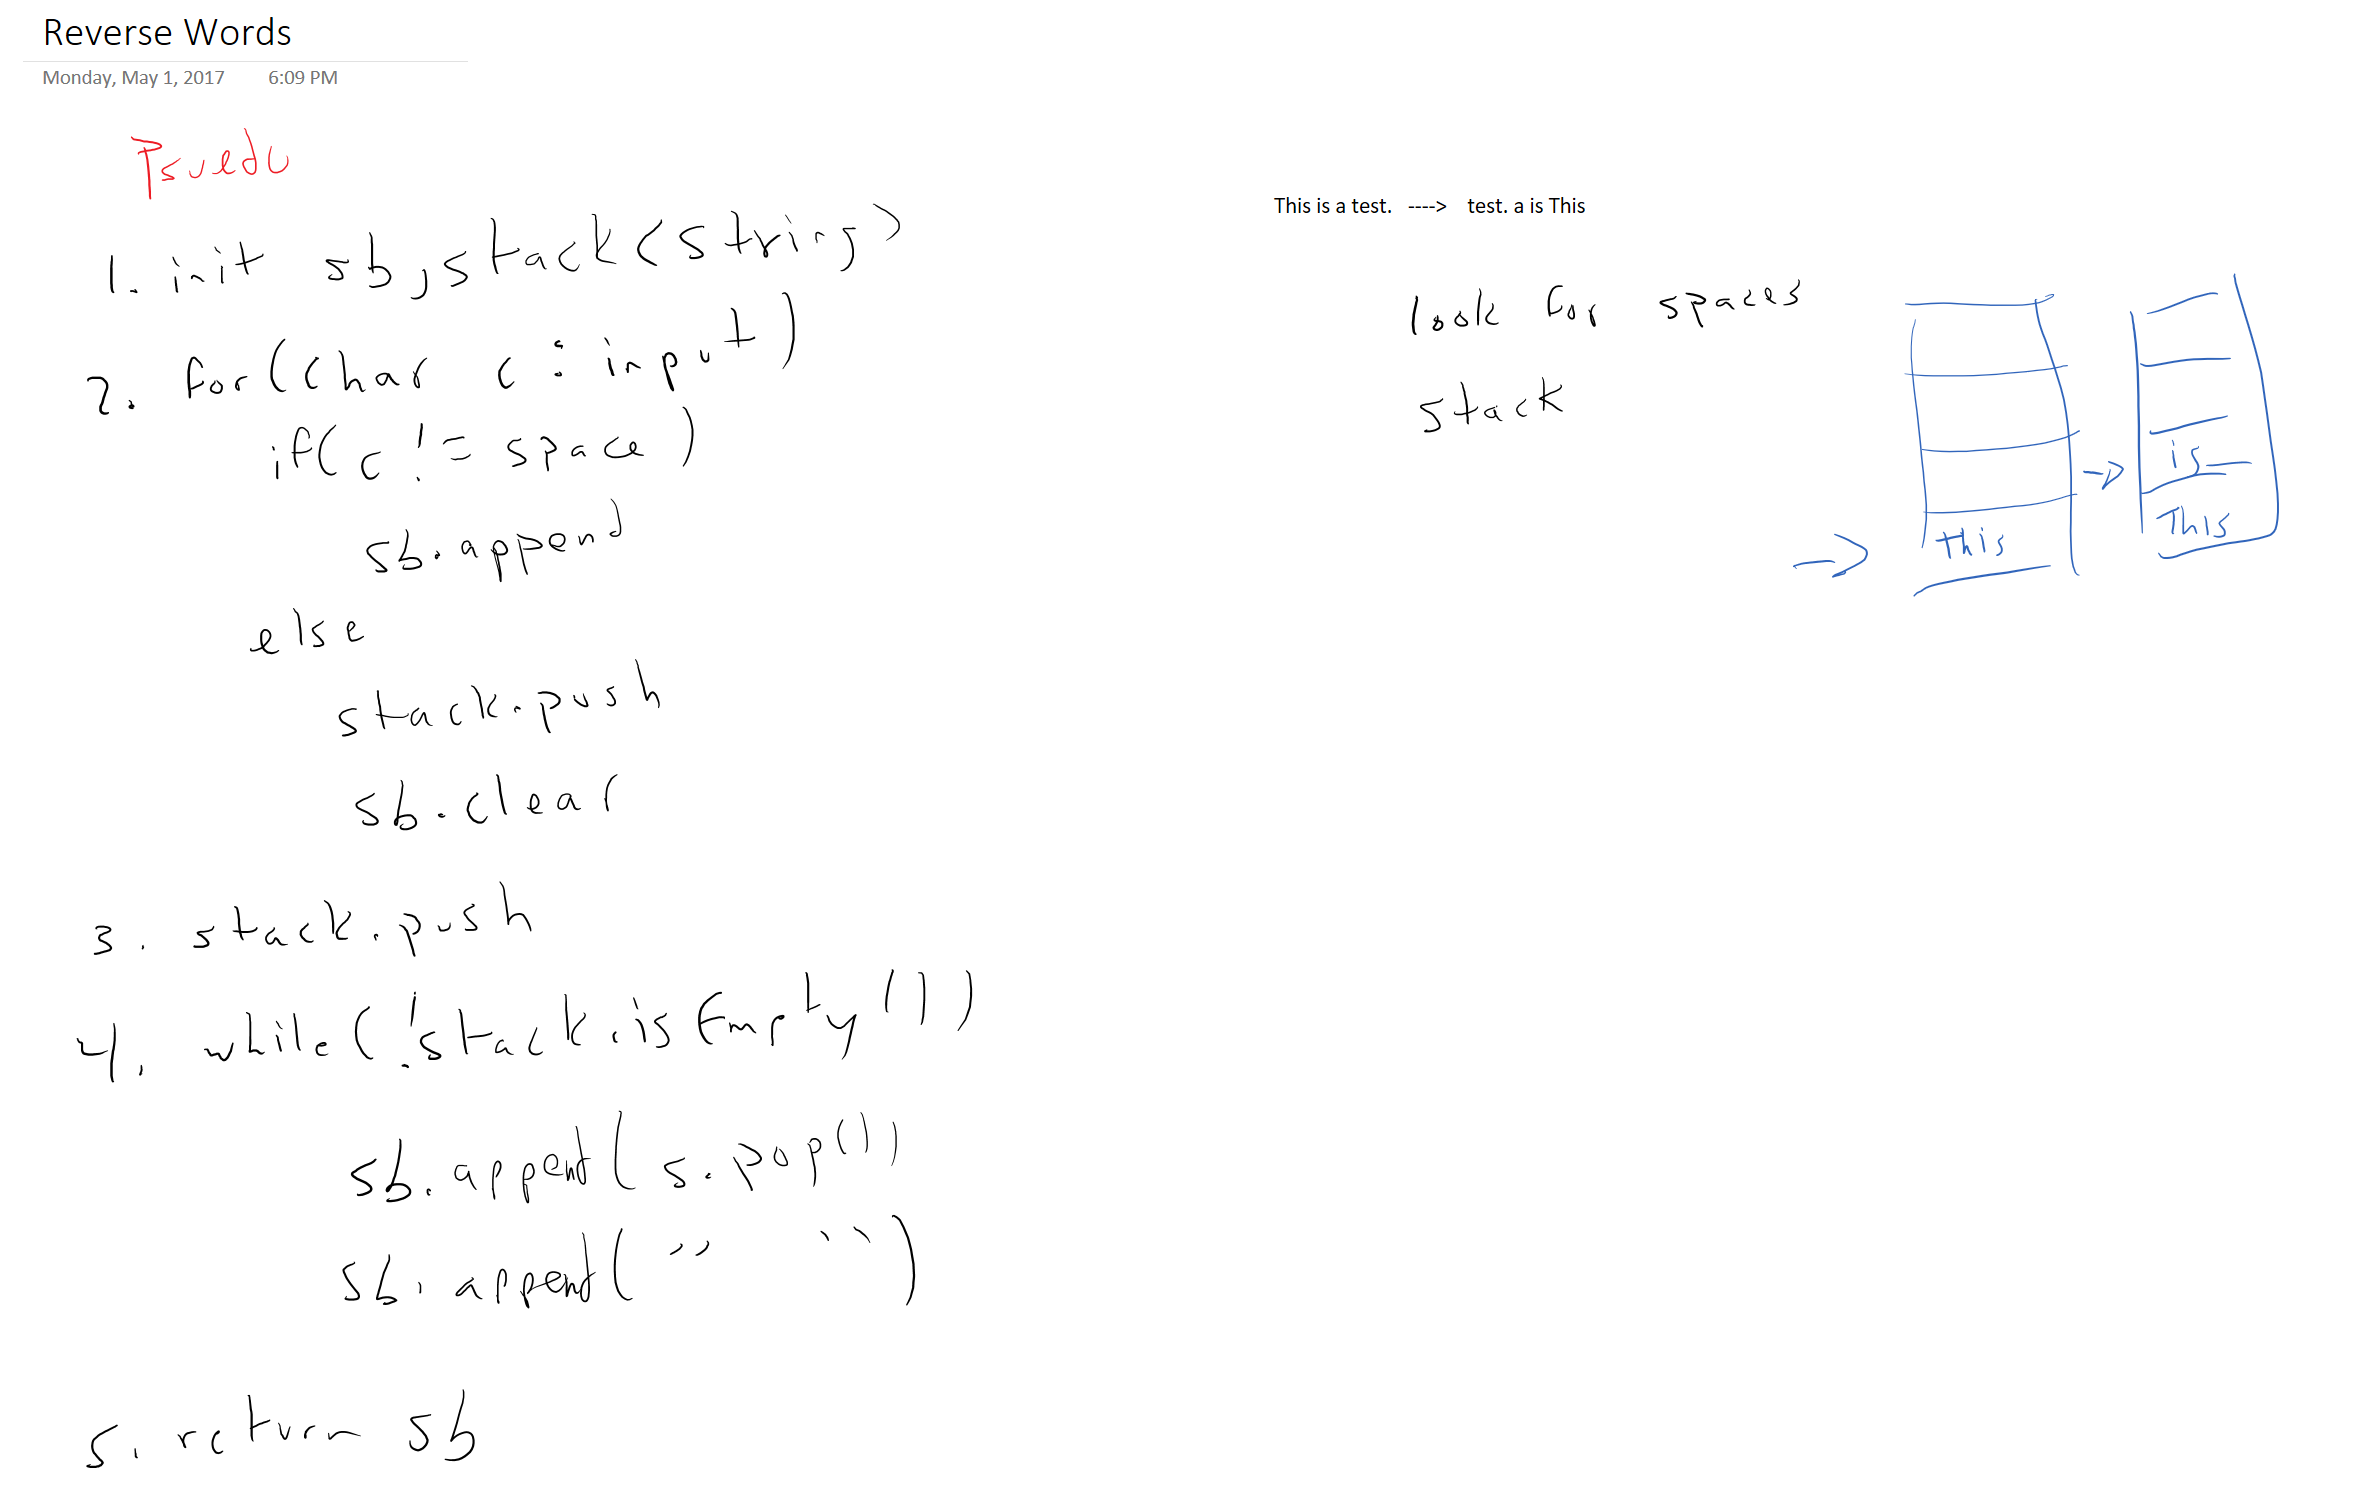 Reverse Words
Monday, May 1, 2017 6:09 PM
Psuedo
1. init sb, stack<string>
2. for(char c : input)
if(c != space)
sb.append
else
stack.push
sb.clear
3. stack.push
4. while(!stack.isEmpty())
sb.append(s.pop())
sb.append(" ")
5. return sb
This is a test. ----> test. a is This
look for spaces
stack
-> This
-> is
This